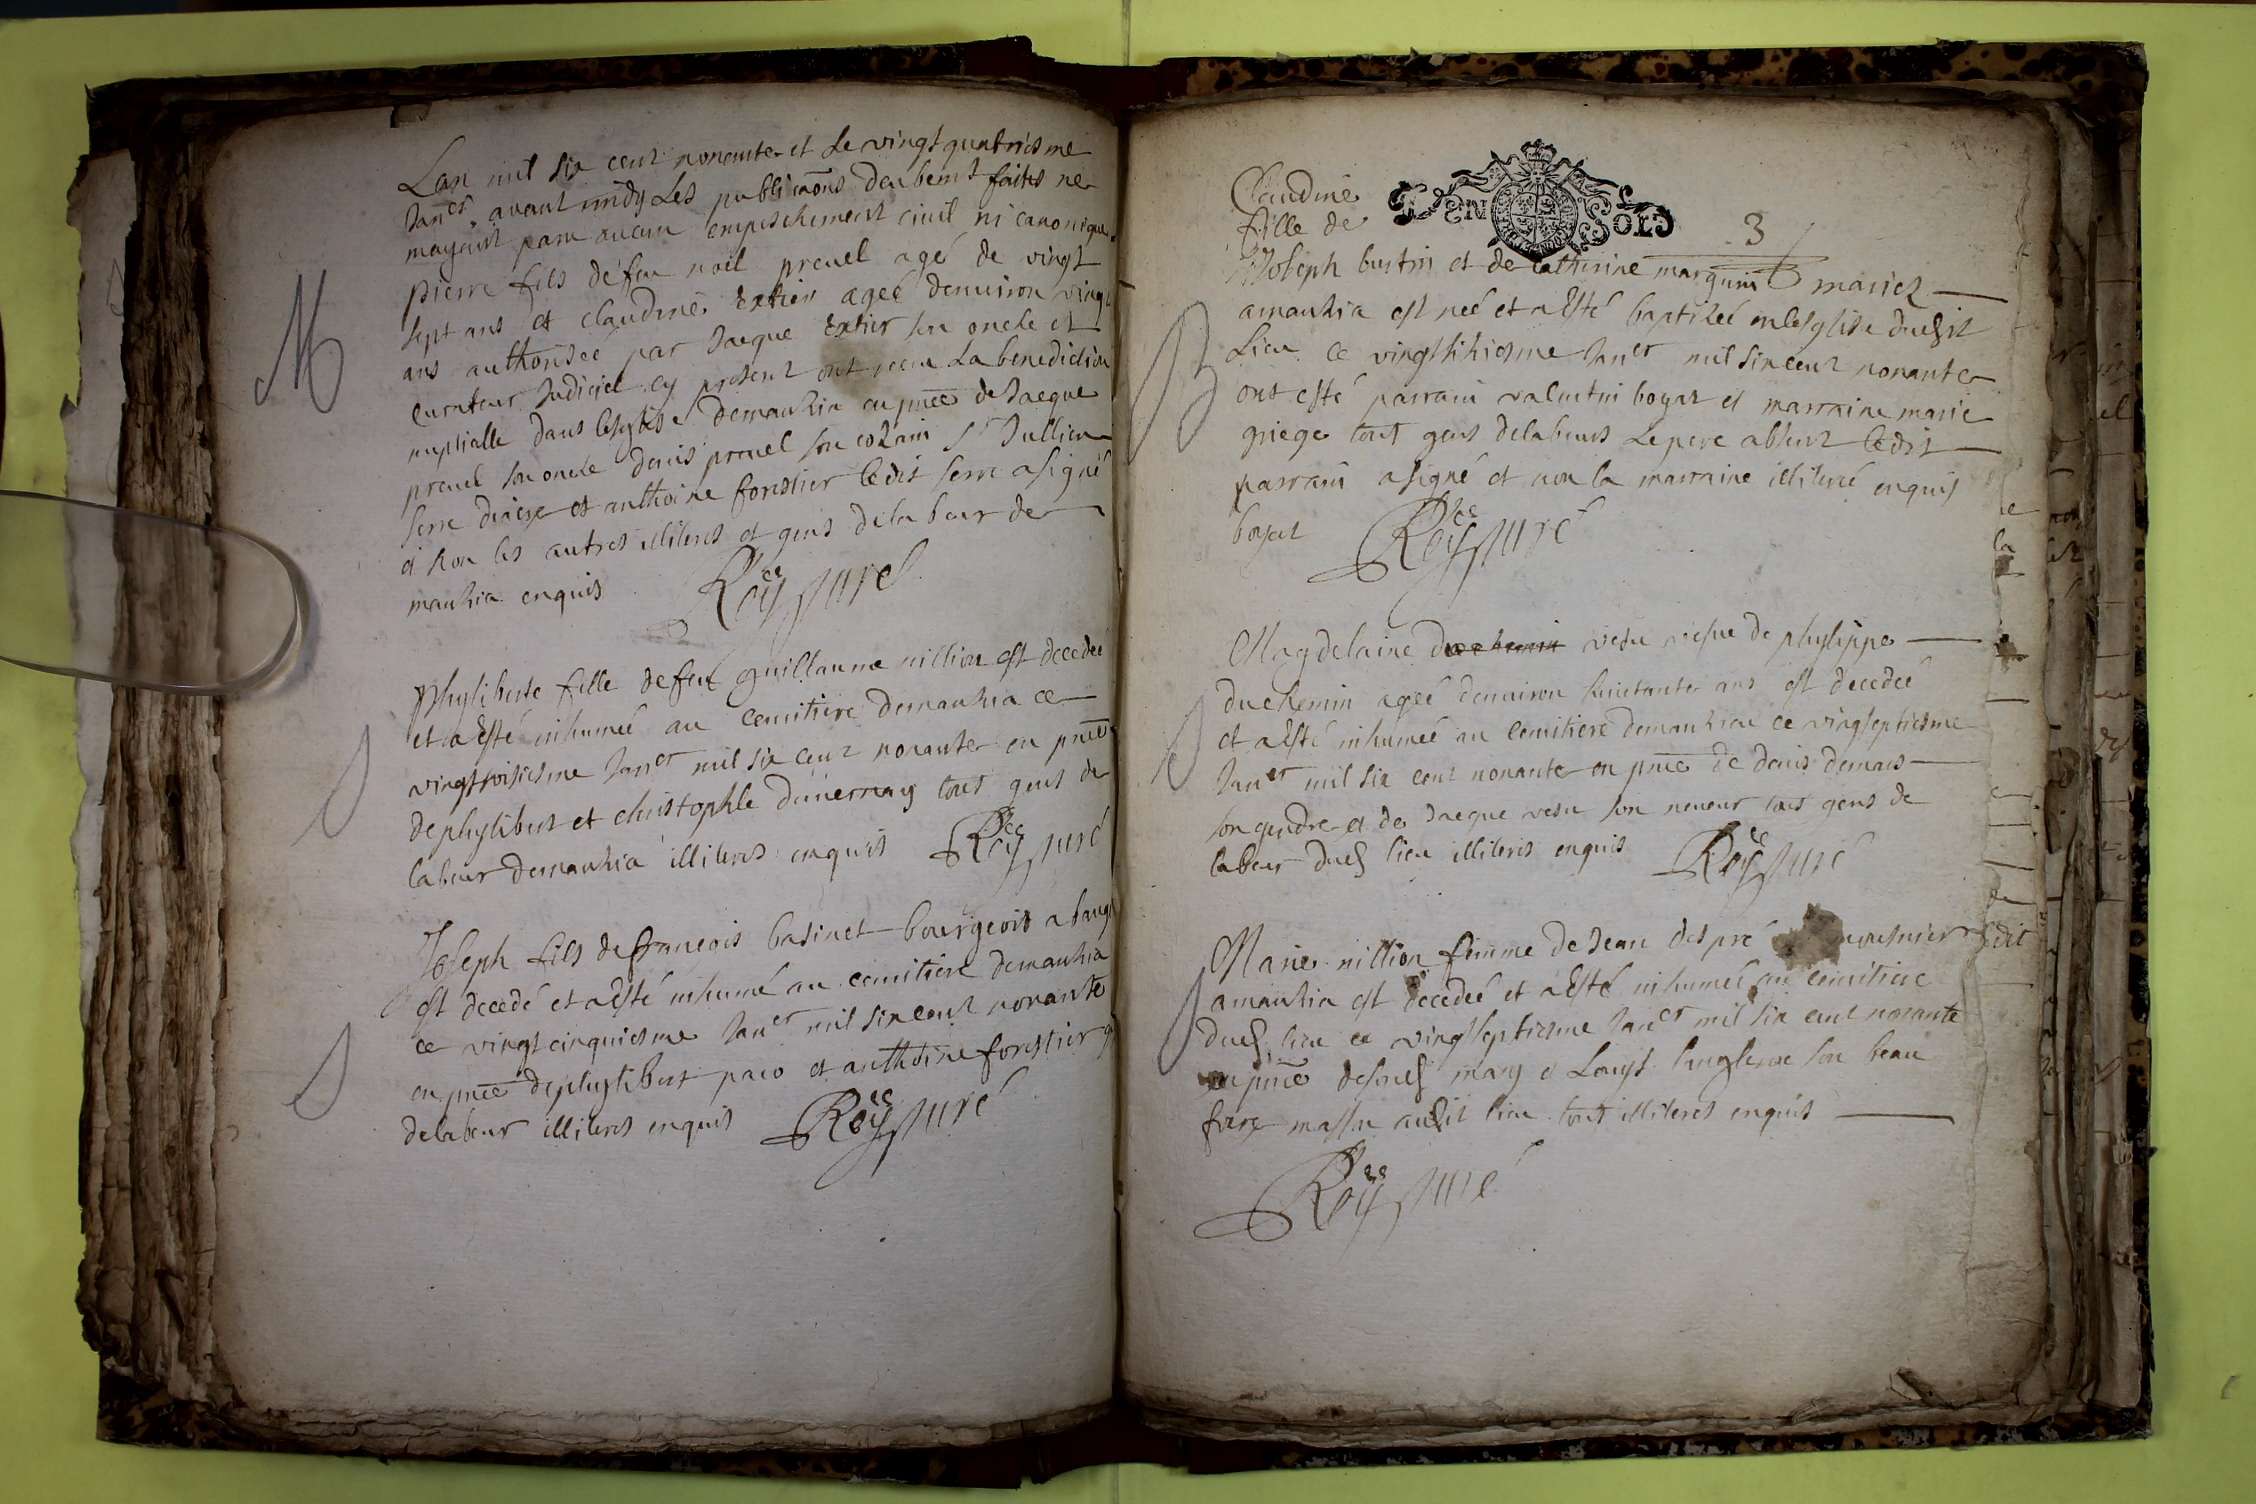 Lan mil six cent nonante et le vingt quatriesme
Janer avant midy Les publicaons deubemt faites ne
mayant paru aucun empeschement civil ni canonique
pierre fils de feu noel preuel agé de vingt
sept ans et claudine extier ageé denuiron vingt
ans authorisee par Jaque extier son oncle et
curateur Judiciel cy present ont receu La benediction
nuptialle dans lesglise demanhia en pnce de Jaque
preuel son oncle denis preuel son cosain Sr Jullien
serre et anthoine forestier ledit serre a signé
et non les autres illiteres et gens delabeur de
manhia enquis Roy Curé
M
phyliberte fille de feu guillaume nillion est decedeé
et a Esté inhumeé au cemitiere demanhia ce
vingt Janer mil six cent nonante en pnce
de phylibert et christophle duuernay tout gens de
labeur demanhia illiteres enquis Roy Curé
Joseph fils de francois basinet bourgeois a baugé
est decedé et a Esté inhumé au cemitiere demanhia
ce vingt cinquiesme Janer mil six cent nonante
en pnce de phylibert et anthoine forestier
delabeur illiteres enquis Roy Curé
Claudine
fille de
3
Joseph et de catherine marguin mariez
amanhia est neé et a Esté baptizeé en lesglise dudit
Lieu ce vingt sixiesme Janer mil six cent nonante
ont esté parrain valentin boyat et marraine marie
griege tout gens delabeurs Le pere absent ledit
parrain a signé et non la marraine illiteré enquis
boyat Roy Curé
B
Magdelaine duchemin vesu vefue de phylippe
duchemin ageé denuiron ans est decedeé
et a Esté inhumeé au cemitiere demanhia ce vingt septiesme
Janer mil six cent nonante en pnce de denis
son gendre et de Jaque vesu son neueur tout gens de
labeur dud lieu illiteres enquis Roy Curé
Marie nillion femme de Jean des pré mousnier
amanhia est decedeé et a Esté inhumeé au cemitiere
dud lieu ce vingt septiesme Janer mil six cent nonante
en pnce de sond mary et Louys son beau
frere audit lieu tout illiteres enquis
Roy Curé